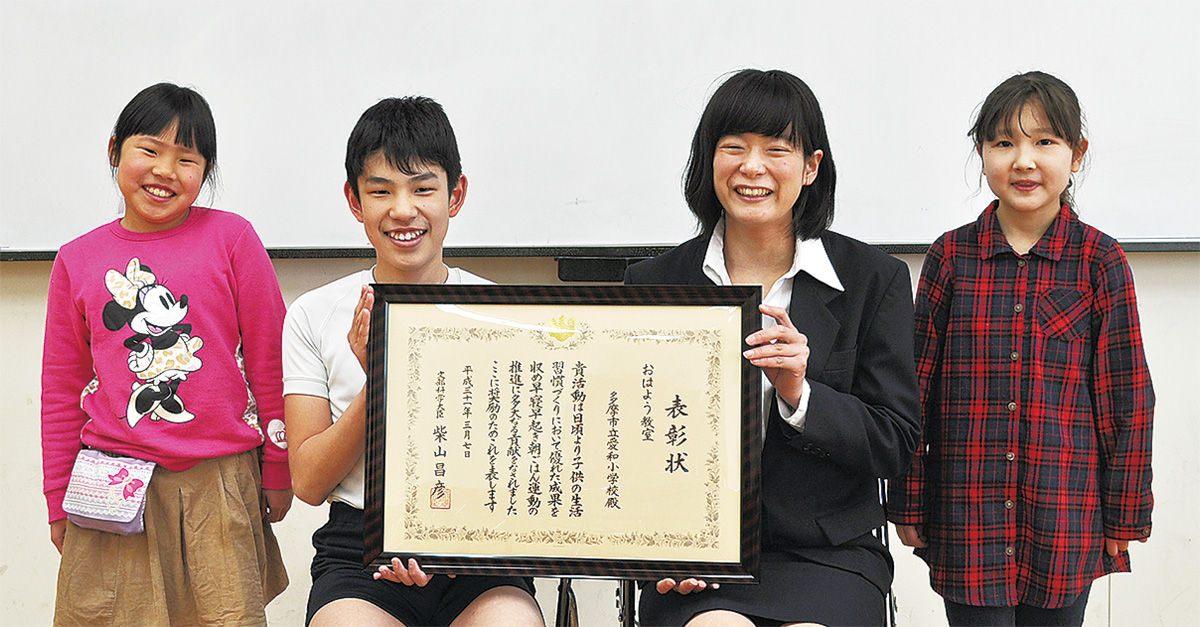 表彰状
おはよう教室
多摩市立愛和小学校殿
貴活動は日頃より子供の生活
習慣づくりにおいて優れた成果を
収め早寝早起き朝ごはん運動の
推進に多大なる貢献をなされました
ここに奨励のためこれを表します
平成三十一年三月七日
文部科学大臣 柴山昌彦